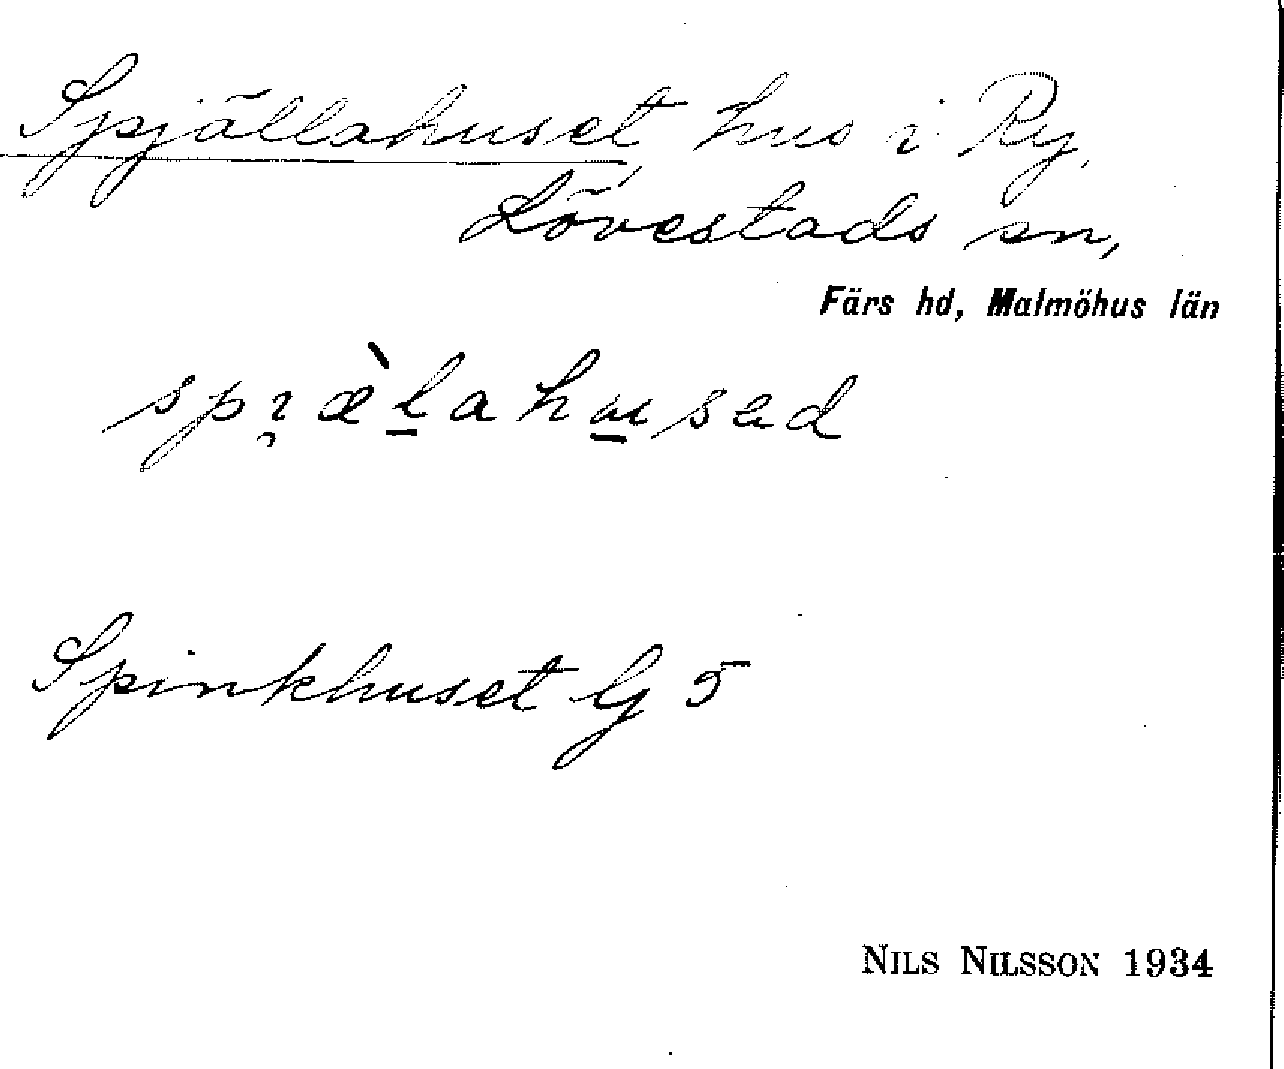 Spjällahuset, hus i Ry,
Lövestads sn,
Färs hd, Malmöhus län
spi̯æ̀l̠ahu̠sad
Spinkhuset G 5
NILS NILSSON 1934